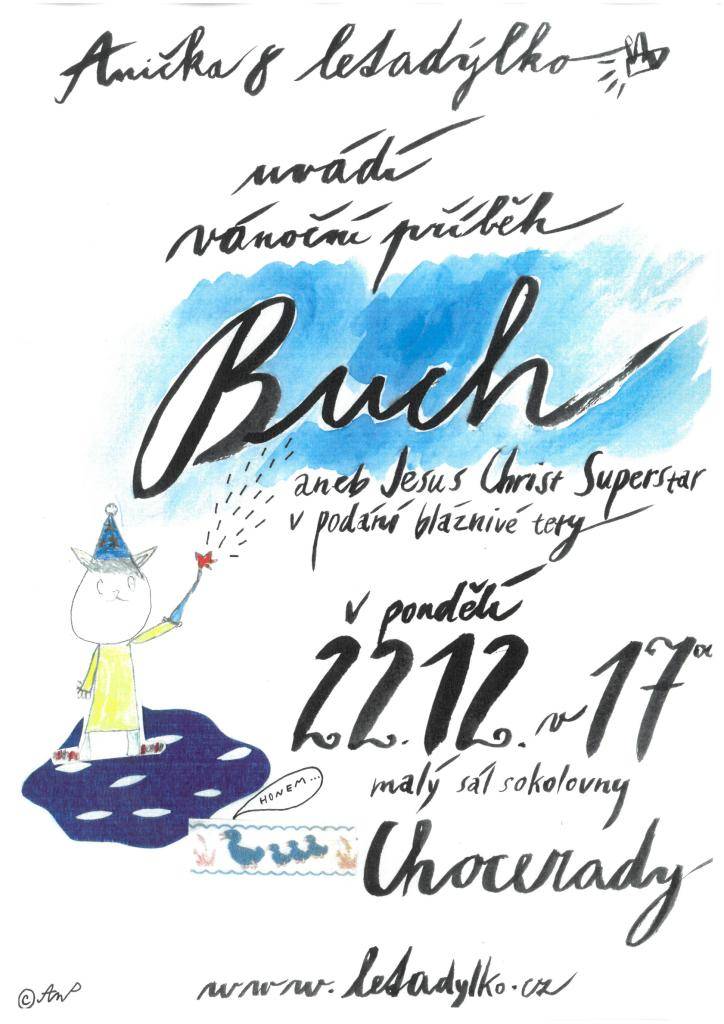 Anička & letadýlko
uvádí
vánoční příběh
Buch
aneb Jesus Christ Superstar
v podání bláznivé tety
v pondělí
22.12. v 17 00
malý sál sokolovny
HONEM...
Chocerady
www.letadylko.cz
© AnP